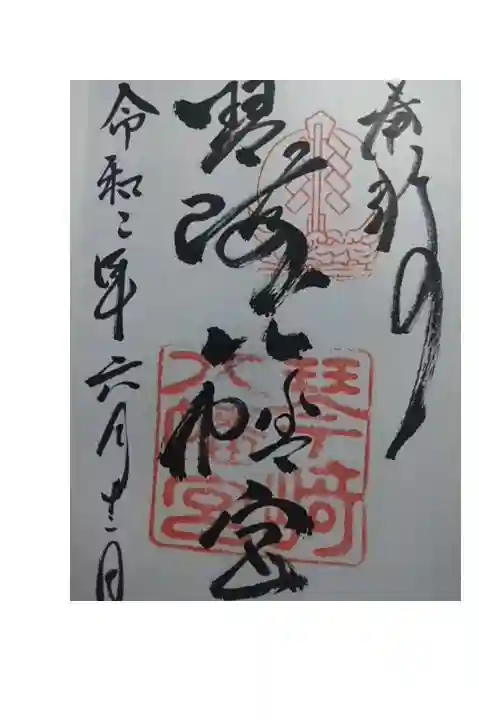 奉拝
琴崎八幡宮
令和二年六月十二日
琴崎
八幡宮